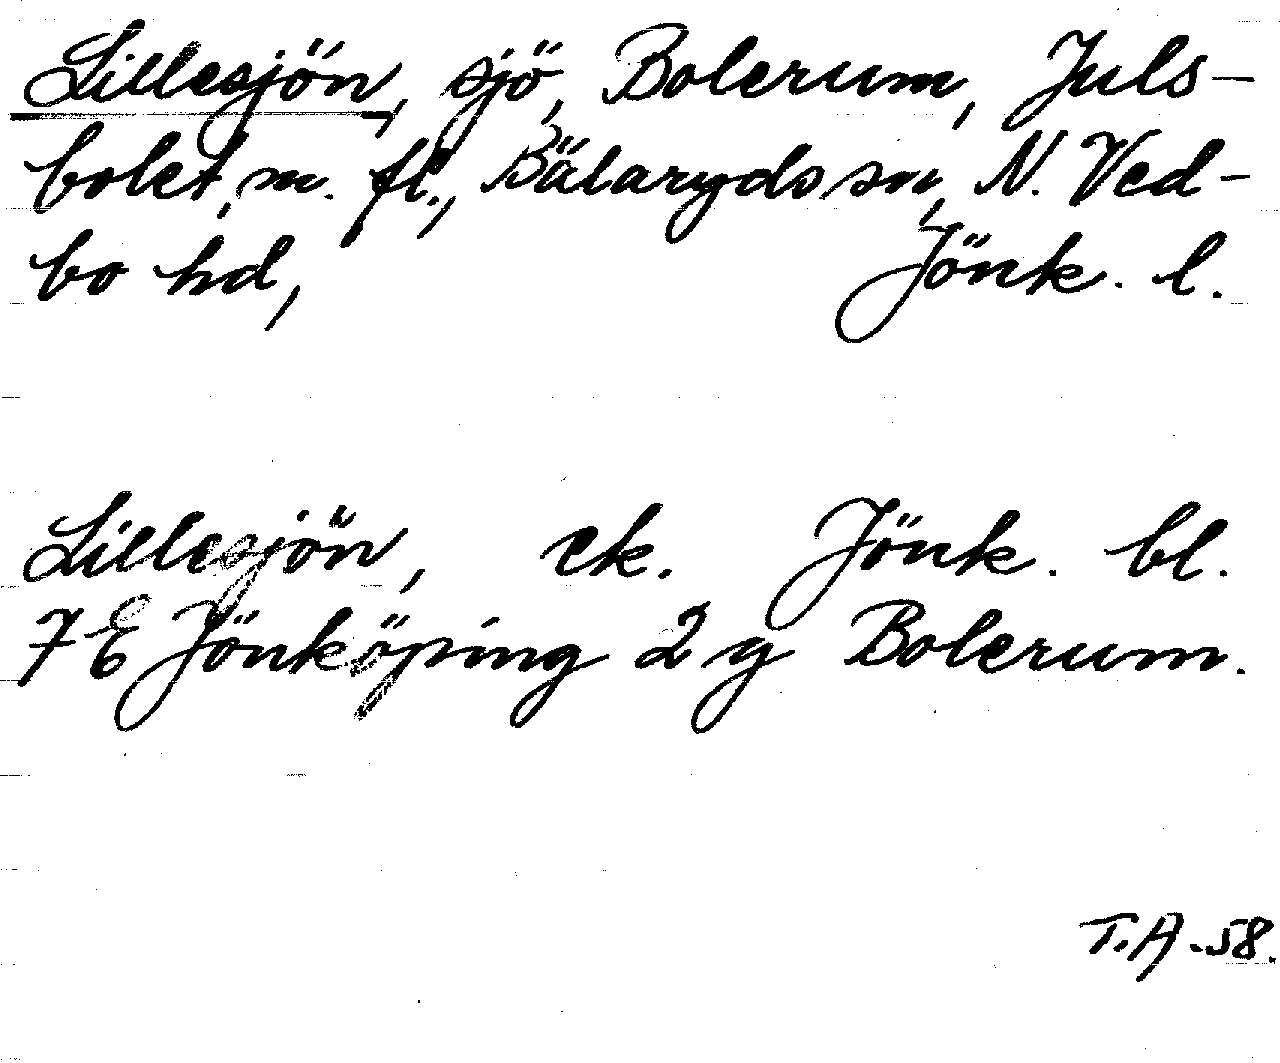 Lillesjön, sjö, Bolerum, Juls-
bolet, m. fl., Bälaryds sn, N. Ved-
bo hd, Jönk. l.
Lillesjön, ek. Jönk. bl.
7 E Jönköping 2 g Bolerum.
T.A -58.